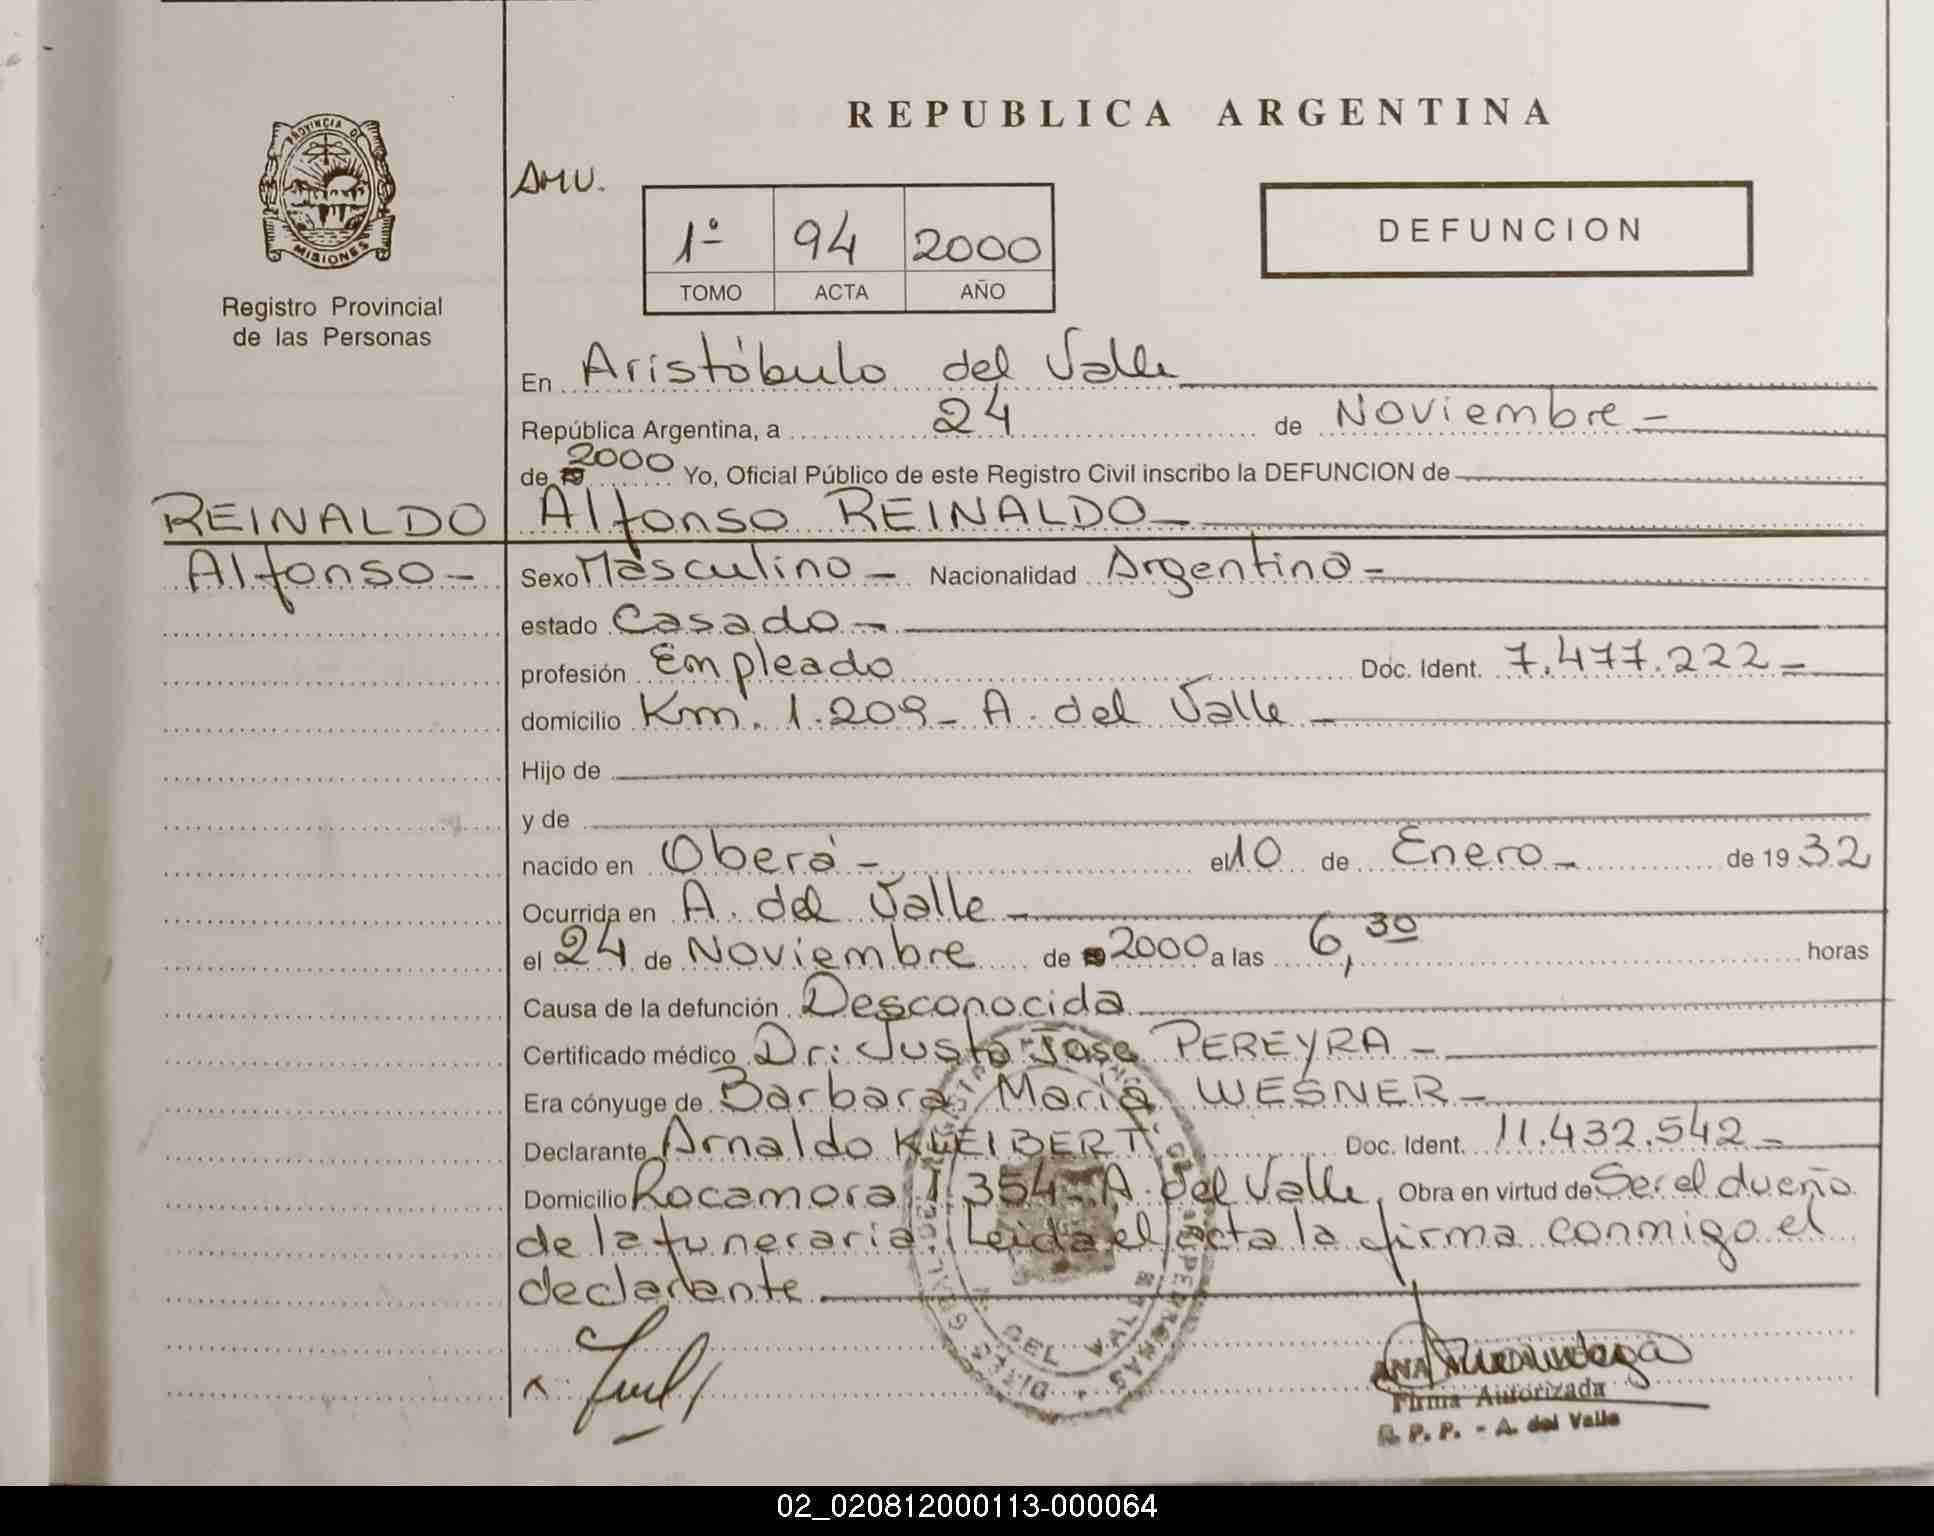 REPUBLICA ARGENTINA
PROVINCIA DE
MISIONES
Registro Provincial
de las Personas
AMV.
1º 94 2000
TOMO ACTA AÑO
DEFUNCION
En Aristóbulo del Valle
República Argentina, a 24 de Noviembre -
de 19 2000 Yo, Oficial Público de este Registro Civil inscribo la DEFUNCION de
REINALDO
Alfonso -
Alfonso REINALDO -
Sexo Masculino - Nacionalidad Argentina -
estado Casado -
profesión Empleado Doc. Ident. 7.477.222 -
domicilio Km. 1.209 - A. del Valle -
Hijo de
y de
nacido en Oberá - el 10 de Enero - de 19 32
Ocurrida en A. del Valle -
el 24 de Noviembre de 2000 a las 6,30 horas
Causa de la defunción Desconocida
Certificado médico Dr: Justo Jose PEREYRA -
Era cónyuge de Barbara Maria WESNER -
Declarante Arnaldo KLEIBERT Doc. Ident. 11.432.542 -
Domicilio Rocamora 1354 - A. del Valle, Obra en virtud de Ser el dueño
de la funeraria. Leida el acta la firma conmigo el
declarante
DEL VALLE
ANA
Firma Autorizada
R. P. P. - A. del Valle
02_020812000113-000064